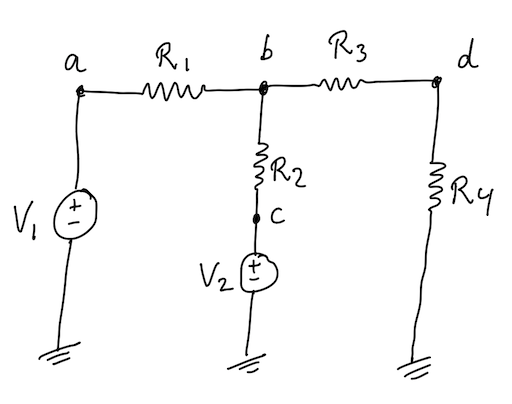 a R1 b R3 d
R2
R4
c
V1 + -
V2 + -